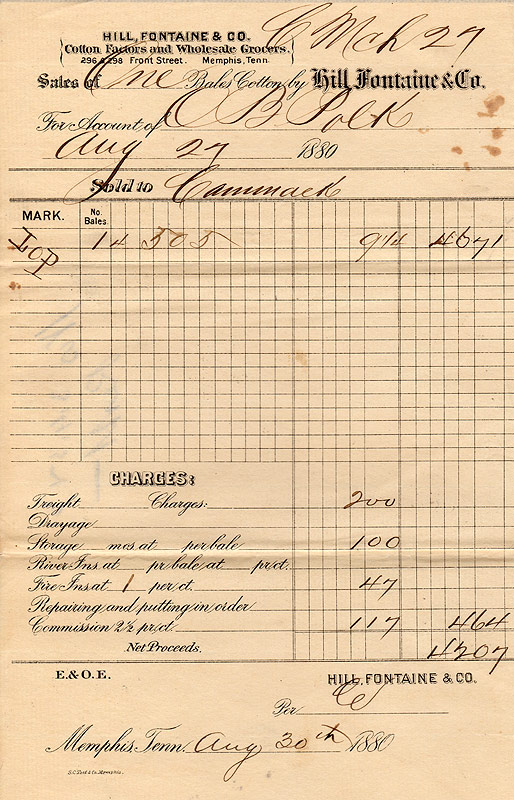 HILL, FONTAINE & CO.
Cotton Factors and Wholesale Grocers.
296 & 298 Front Street. Memphis, Tenn
C Mch 27
Sales of One Bales Cotton by Hill Fontaine & Co.
For Account of C B Polk
Aug 27 1880
Sold to Cammack
MARK. No. Bales.
LOP 1 4 505 9 1/4 4671
CHARGES:
Freight Charges: 200
Drayage
Storage mos. at per bale 100
River Ins. at pr bale at pr ct.
Fire Ins at 1 per ct. 47
Repairing and putting in order
Commission 2½ pr ct. 117 464
Net Proceeds. 4207
E. & O. E. HILL, FONTAINE & CO.
Per
Memphis, Tenn. Aug 30th 1880